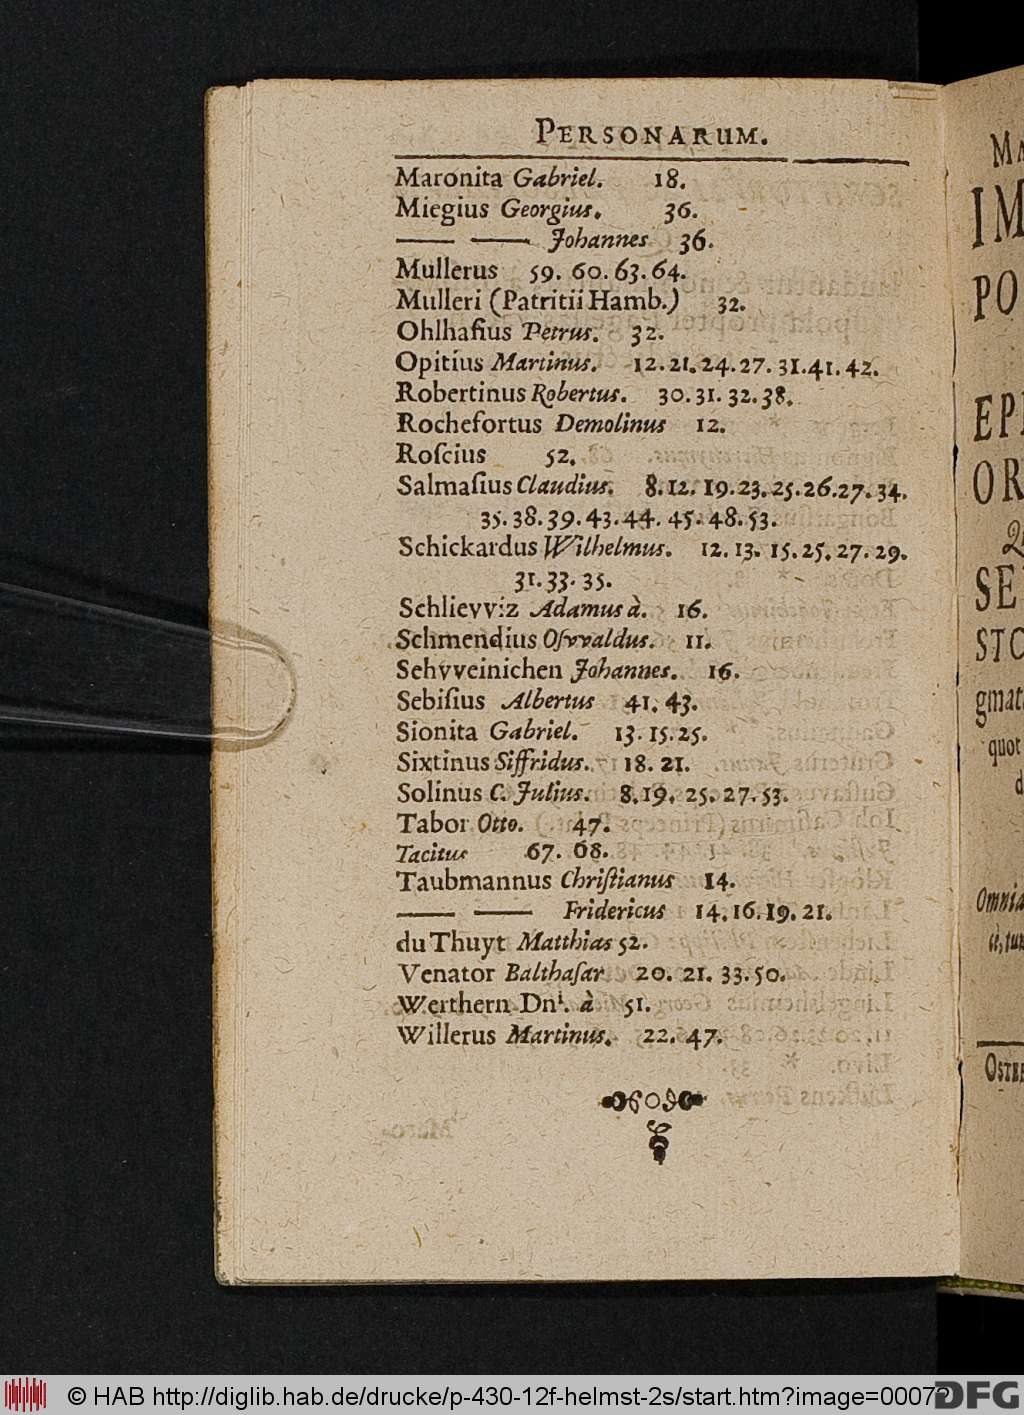 PERSONARUM.
Maronita Gabriel. 18.
Miegius Georgius. 36.
—— —— Johannes 36.
Mullerus 59. 60. 63. 64.
Mulleri (Patritii Hamb.) 32.
Ohlhafius Petrus. 32.
Opitius Martinus. 12. 21. 24. 27. 31. 41. 42.
Robertinus Robertus. 30. 31. 32. 38.
Rochefortus Demolinus 12.
Roſcius 52.
Salmaſius Claudius. 8. 12. 19. 23. 25. 26. 27. 34.
35. 38. 39. 43. 44. 45. 48. 53.
Schickardus Wilhelmus. 12. 13. 15. 25. 27. 29.
31. 33. 35.
Schlievviz Adamus à. 16.
Schmendius Oſvvaldus. 11.
Sehvveinichen Johannes. 16.
Sebiſius Albertus 41. 43.
Sionita Gabriel. 13. 15. 25.
Sixtinus Siffridus. 18. 21.
Solinus C. Julius. 8. 19. 25. 27. 53.
Tabor Otto. 47.
Tacitus 67. 68.
Taubmannus Chriſtianus 14.
—— —— Fridericus 14. 16. 19. 21.
du Thuyt Matthias 52.
Venator Balthaſar 20. 21. 33. 50.
Werthern Dnⁱ. à 51.
Willerus Martinus. 22. 47.
MA
IM
PO
EPI
OR
SE
STO
gmat
quot
d
Omnia
OSTE
© HAB http://diglib.hab.de/drucke/p-430-12f-helmst-2s/start.htm?image=00072
DFG